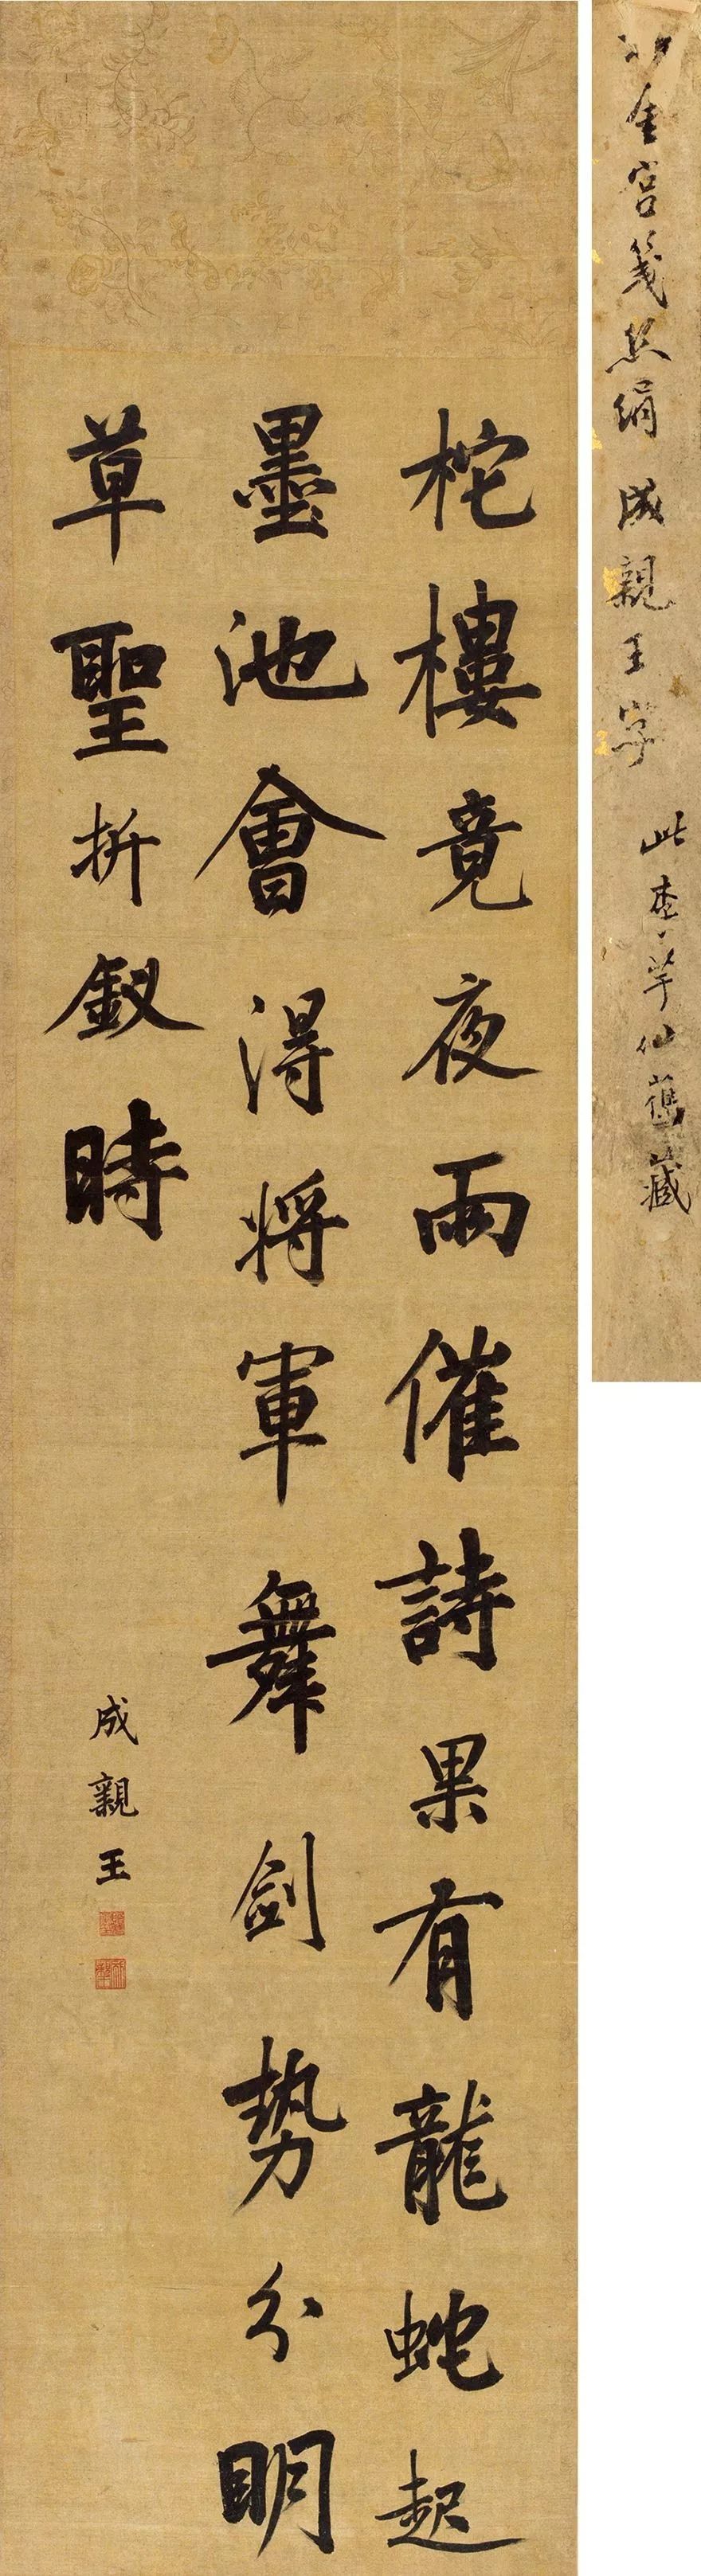 柁樓竟夜雨催詩果有龍蛇起
墨池會得將軍舞劍勢分明
草聖折釵時
成親王
金宮箋絲絹 成親王字
此李芋仙舊藏